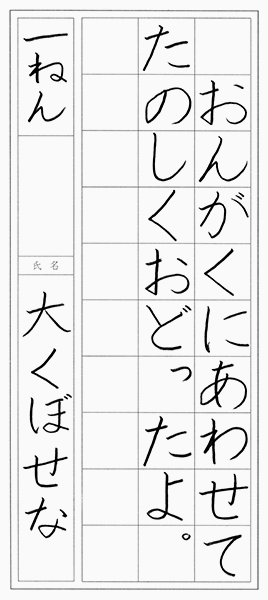 おんがくにあわせて
たのしくおどったよ。
一ねん
氏名
大くぼせな